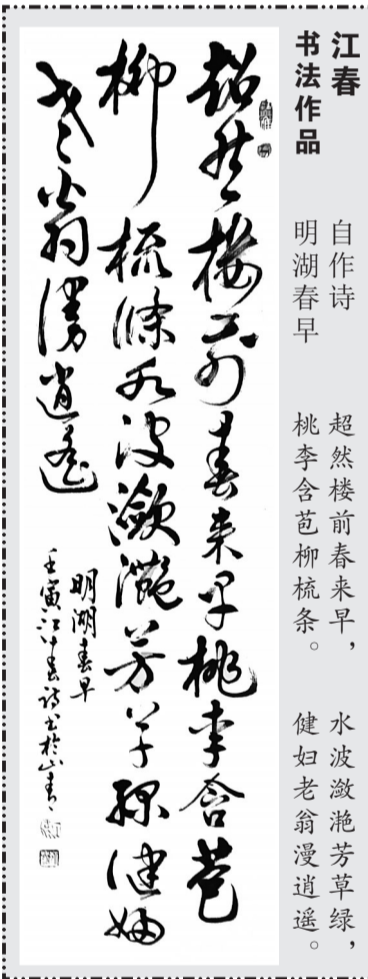 江春
书法作品
自作诗
明湖春早
超然楼前春来早，
桃李含苞柳梳条。
水波潋滟芳草绿，
健妇老翁漫逍遥。
超然楼前春来早桃李含苞
柳梳條水波潋滟芳草绿健妇
老翁漫逍遥
明湖春早
壬寅江春诗书於